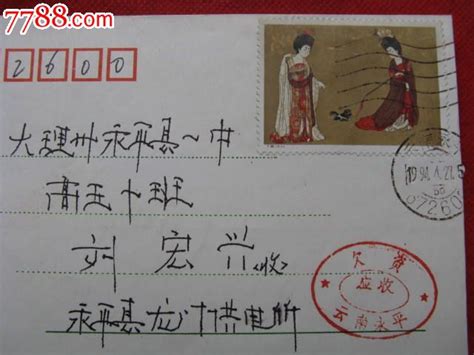 7788.com
2600
大理州永平县一中
高五十班
刘宏兴(收)
永平县龙门供电所
欠资
应收
云南永平